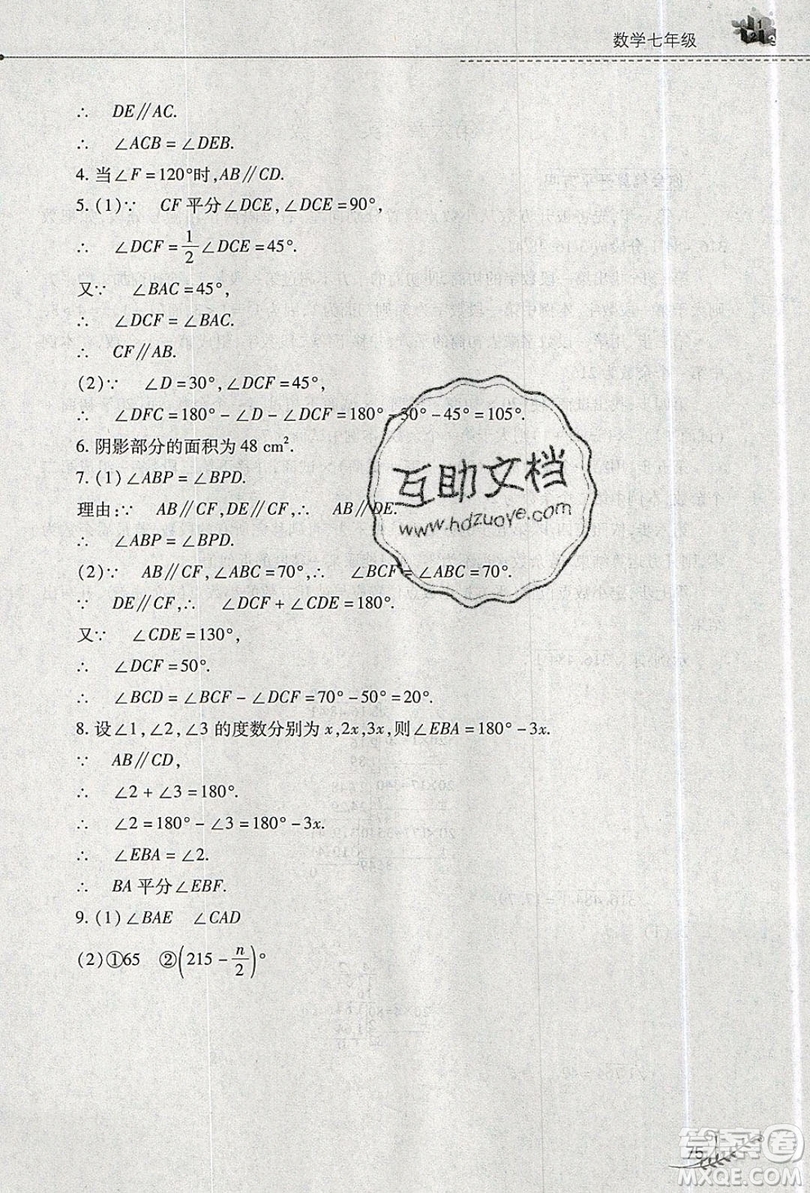 数学七年级
∴ DE∥AC.
∴ ∠ACB=∠DEB.
4. 当∠F=120°时,AB∥CD.
5. (1)∵ CF 平分∠DCE,∠DCE=90°,
∴ ∠DCF=1/2∠DCE=45°.
又∵ ∠BAC=45°,
∴ ∠DCF=∠BAC.
∴ CF∥AB.
(2)∵ ∠D=30°,∠DCF=45°,
∴ ∠DFC=180°-∠D-∠DCF=180°-30°-45°=105°.
6. 阴影部分的面积为 48 cm².
7. (1)∠ABP=∠BPD.
理由:∵ AB∥CF,DE∥CF,∴ AB∥DE.
∴ ∠ABP=∠BPD.
(2)∵ AB∥CF,∠ABC=70°,∴ ∠BCF=∠ABC=70°.
∵ DE∥CF,∴ ∠DCF+∠CDE=180°.
又∵ ∠CDE=130°,
∴ ∠DCF=50°.
∴ ∠BCD=∠BCF-∠DCF=70°-50°=20°.
8. 设∠1,∠2,∠3 的度数分别为 x,2x,3x,则∠EBA=180°-3x.
∵ AB∥CD,
∴ ∠2+∠3=180°.
∴ ∠2=180°-∠3=180°-3x.
∴ ∠EBA=∠2.
∴ BA 平分∠EBF.
9. (1)∠BAE ∠CAD
(2)①65 ②(215-n/2)°
互助文档
www.hdzuoye.com
75
答案圈
MXQE.COM